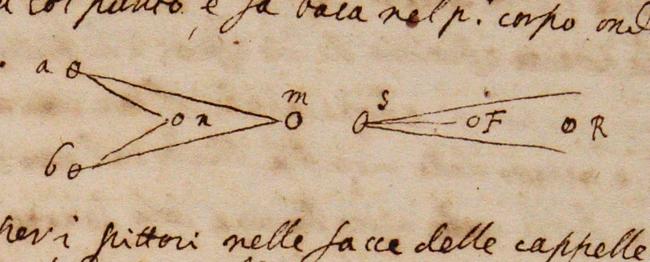 col punto, e fa basa nel p.º corpo ond
a
b
n
m
S
F
R
per i pittori nelle facce delle cappelle